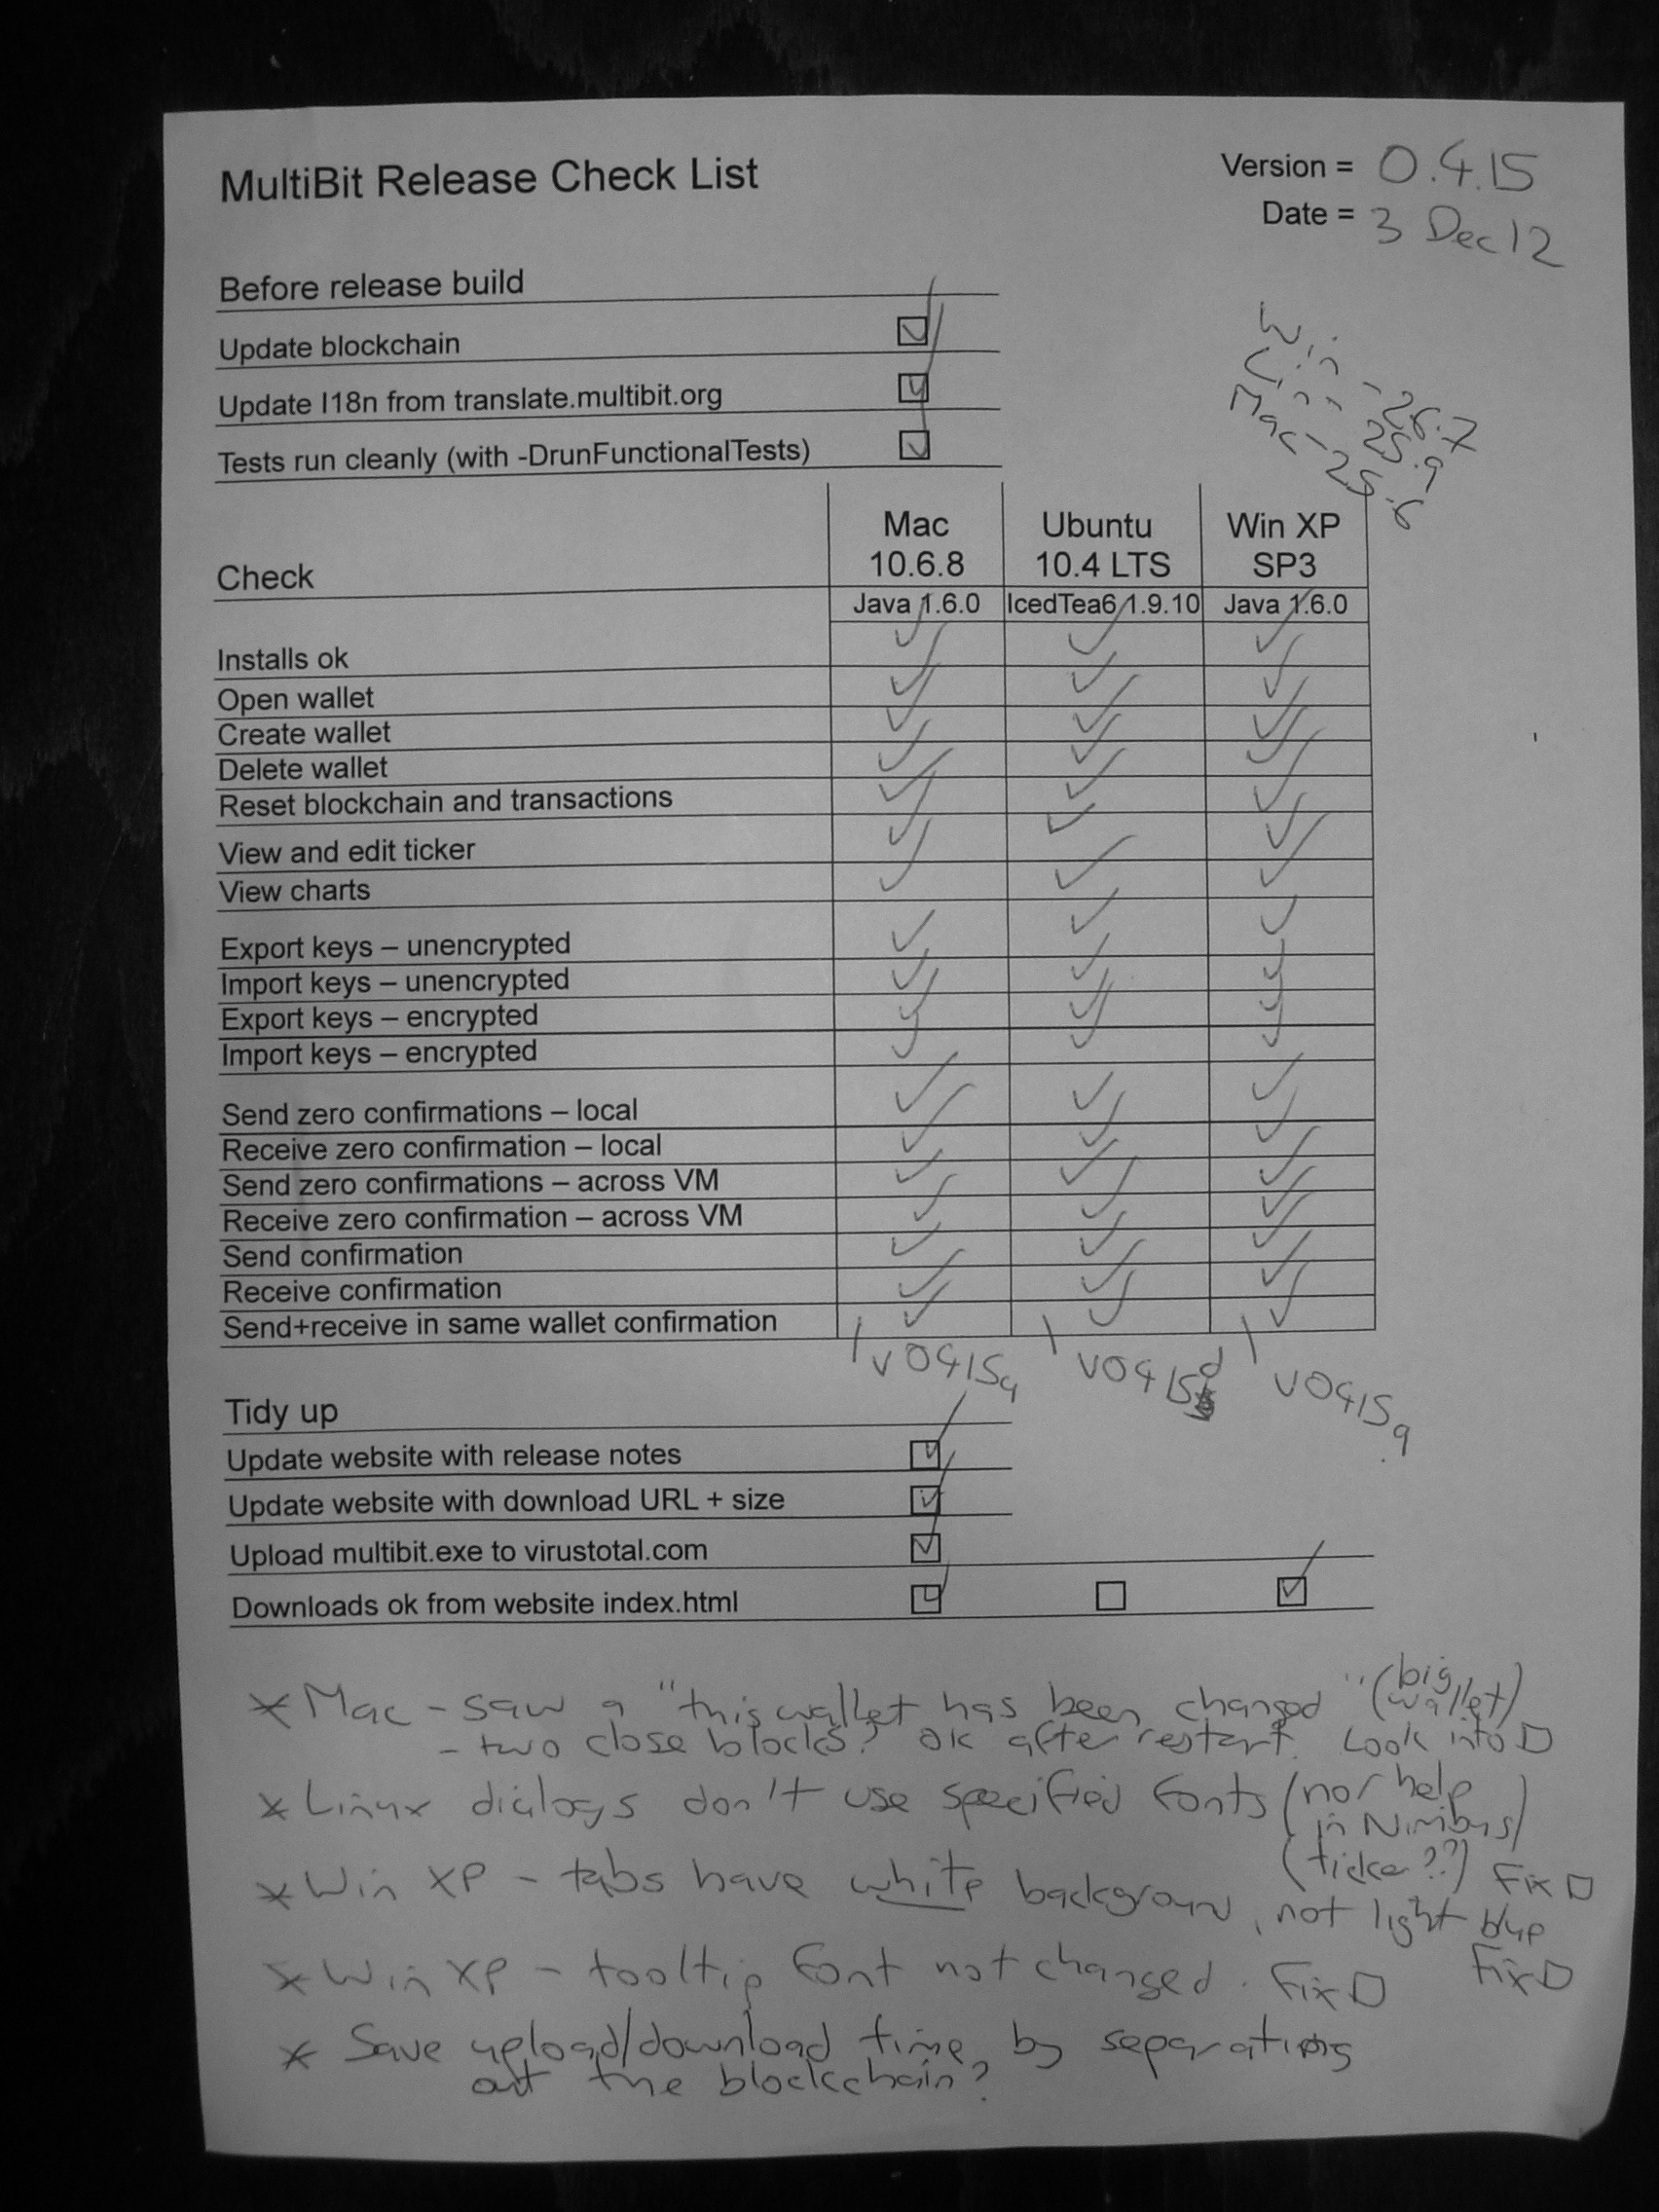 MultiBit Release Check List
Version = 0.4.15
Date = 3 Dec 12
Before release build
Update blockchain
Update I18n from translate.multibit.org
Tests run cleanly (with -DrunFunctionalTests)
Win - 26.7
Lin - 25.9
Mac - 25.6
Check
Mac 10.6.8
Ubuntu 10.4 LTS
Win XP SP3
Java 1.6.0
IcedTea6 1.9.10
Java 1.6.0
Installs ok
Open wallet
Create wallet
Delete wallet
Reset blockchain and transactions
View and edit ticker
View charts
Export keys – unencrypted
Import keys – unencrypted
Export keys – encrypted
Import keys – encrypted
Send zero confirmations – local
Receive zero confirmation – local
Send zero confirmations – across VM
Receive zero confirmation – across VM
Send confirmation
Receive confirmation
Send+receive in same wallet confirmation
v0415 v0415d v0415
Tidy up
Update website with release notes
Update website with download URL + size
Upload multibit.exe to virustotal.com
Downloads ok from website index.html
* Mac - saw a "this wallet has been changed" (big wallet)
- two close blocks? OK after restart. Look into
* Linux dialogs don't use specified fonts (nor help in Nimbus)
(ticker??) Fix
* Win XP - tabs have white background, not light blue
Fix
* Win XP - tooltip font not changed. Fix
* Save upload/download time by separating
out the blockchain?